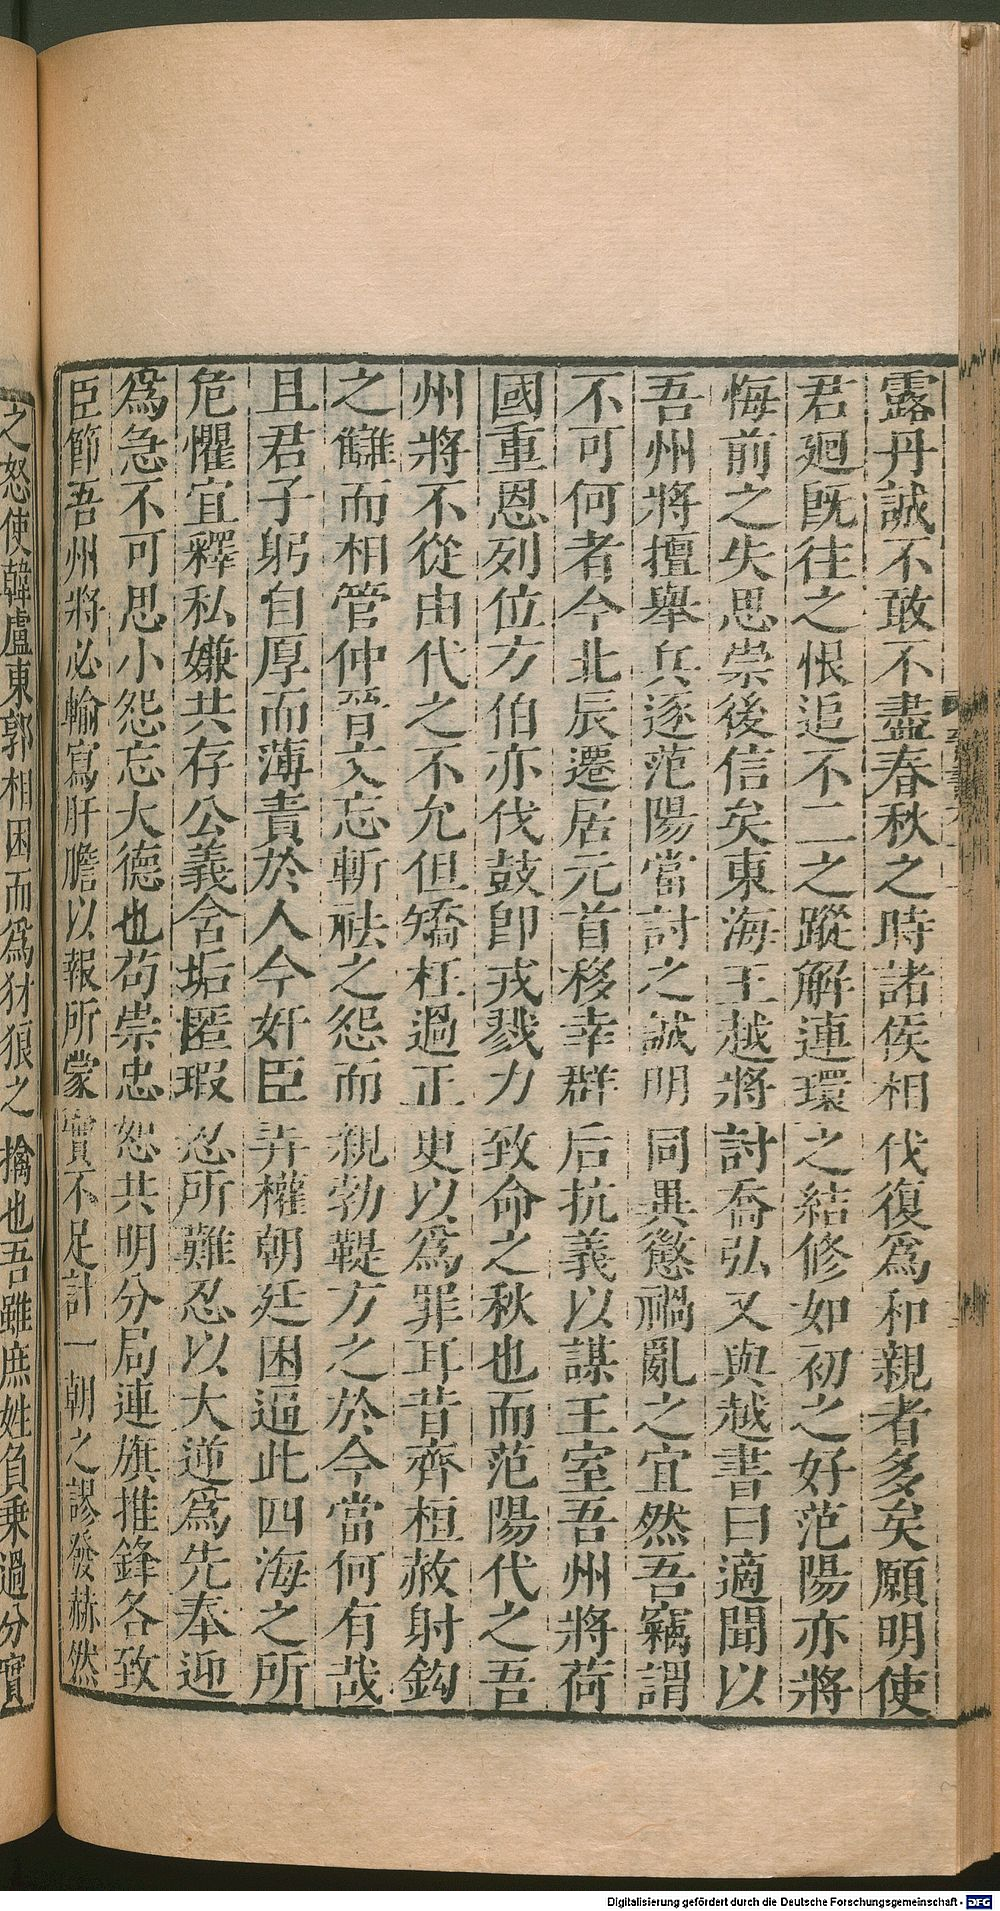 露丹誠不敢不盡春秋之時諸侯相伐復爲和親者多矣願明使
君廻旣往之恨追不二之蹤解連環之結修如初之好范陽亦將
悔前之失思崇後信矣東海王越將討喬弘又與越書曰適聞以
吾州將擅舉兵逐范陽當討之誠明同異懲禍亂之宜然吾竊謂
不可何者今北辰遷居元首移幸群后抗義以謀王室吾州將荷
國重恩列位方伯亦伐鼓卽戎戮力致命之秋也而范陽代之吾
州將不從由代之不允但矯枉過正更以爲罪耳昔齊桓赦射鈎
之讎而相管仲晉文忘斬袪之怨而親勃鞮方之於今當何有哉
且君子躬自厚而薄責於人今奸臣弄權朝廷困逼此四海之所
危懼宜釋私嫌共存公義含垢匿瑕忍所難忍以大逆爲先奉迎
爲急不可思小怨忘大德也苟崇忠恕共明分局連旗推鋒各致
臣節吾州將必輸寫肝膽以報所蒙實不足計一朝之謬發赫然
之怒使韓盧東郭相困而爲豺狼之擒也吾雖庶姓負乗過分實
Digitalisierung gefördert durch die Deutsche Forschungsgemeinschaft - DFG